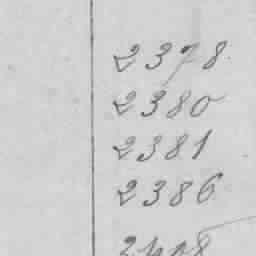 2378
2380
2381
2386